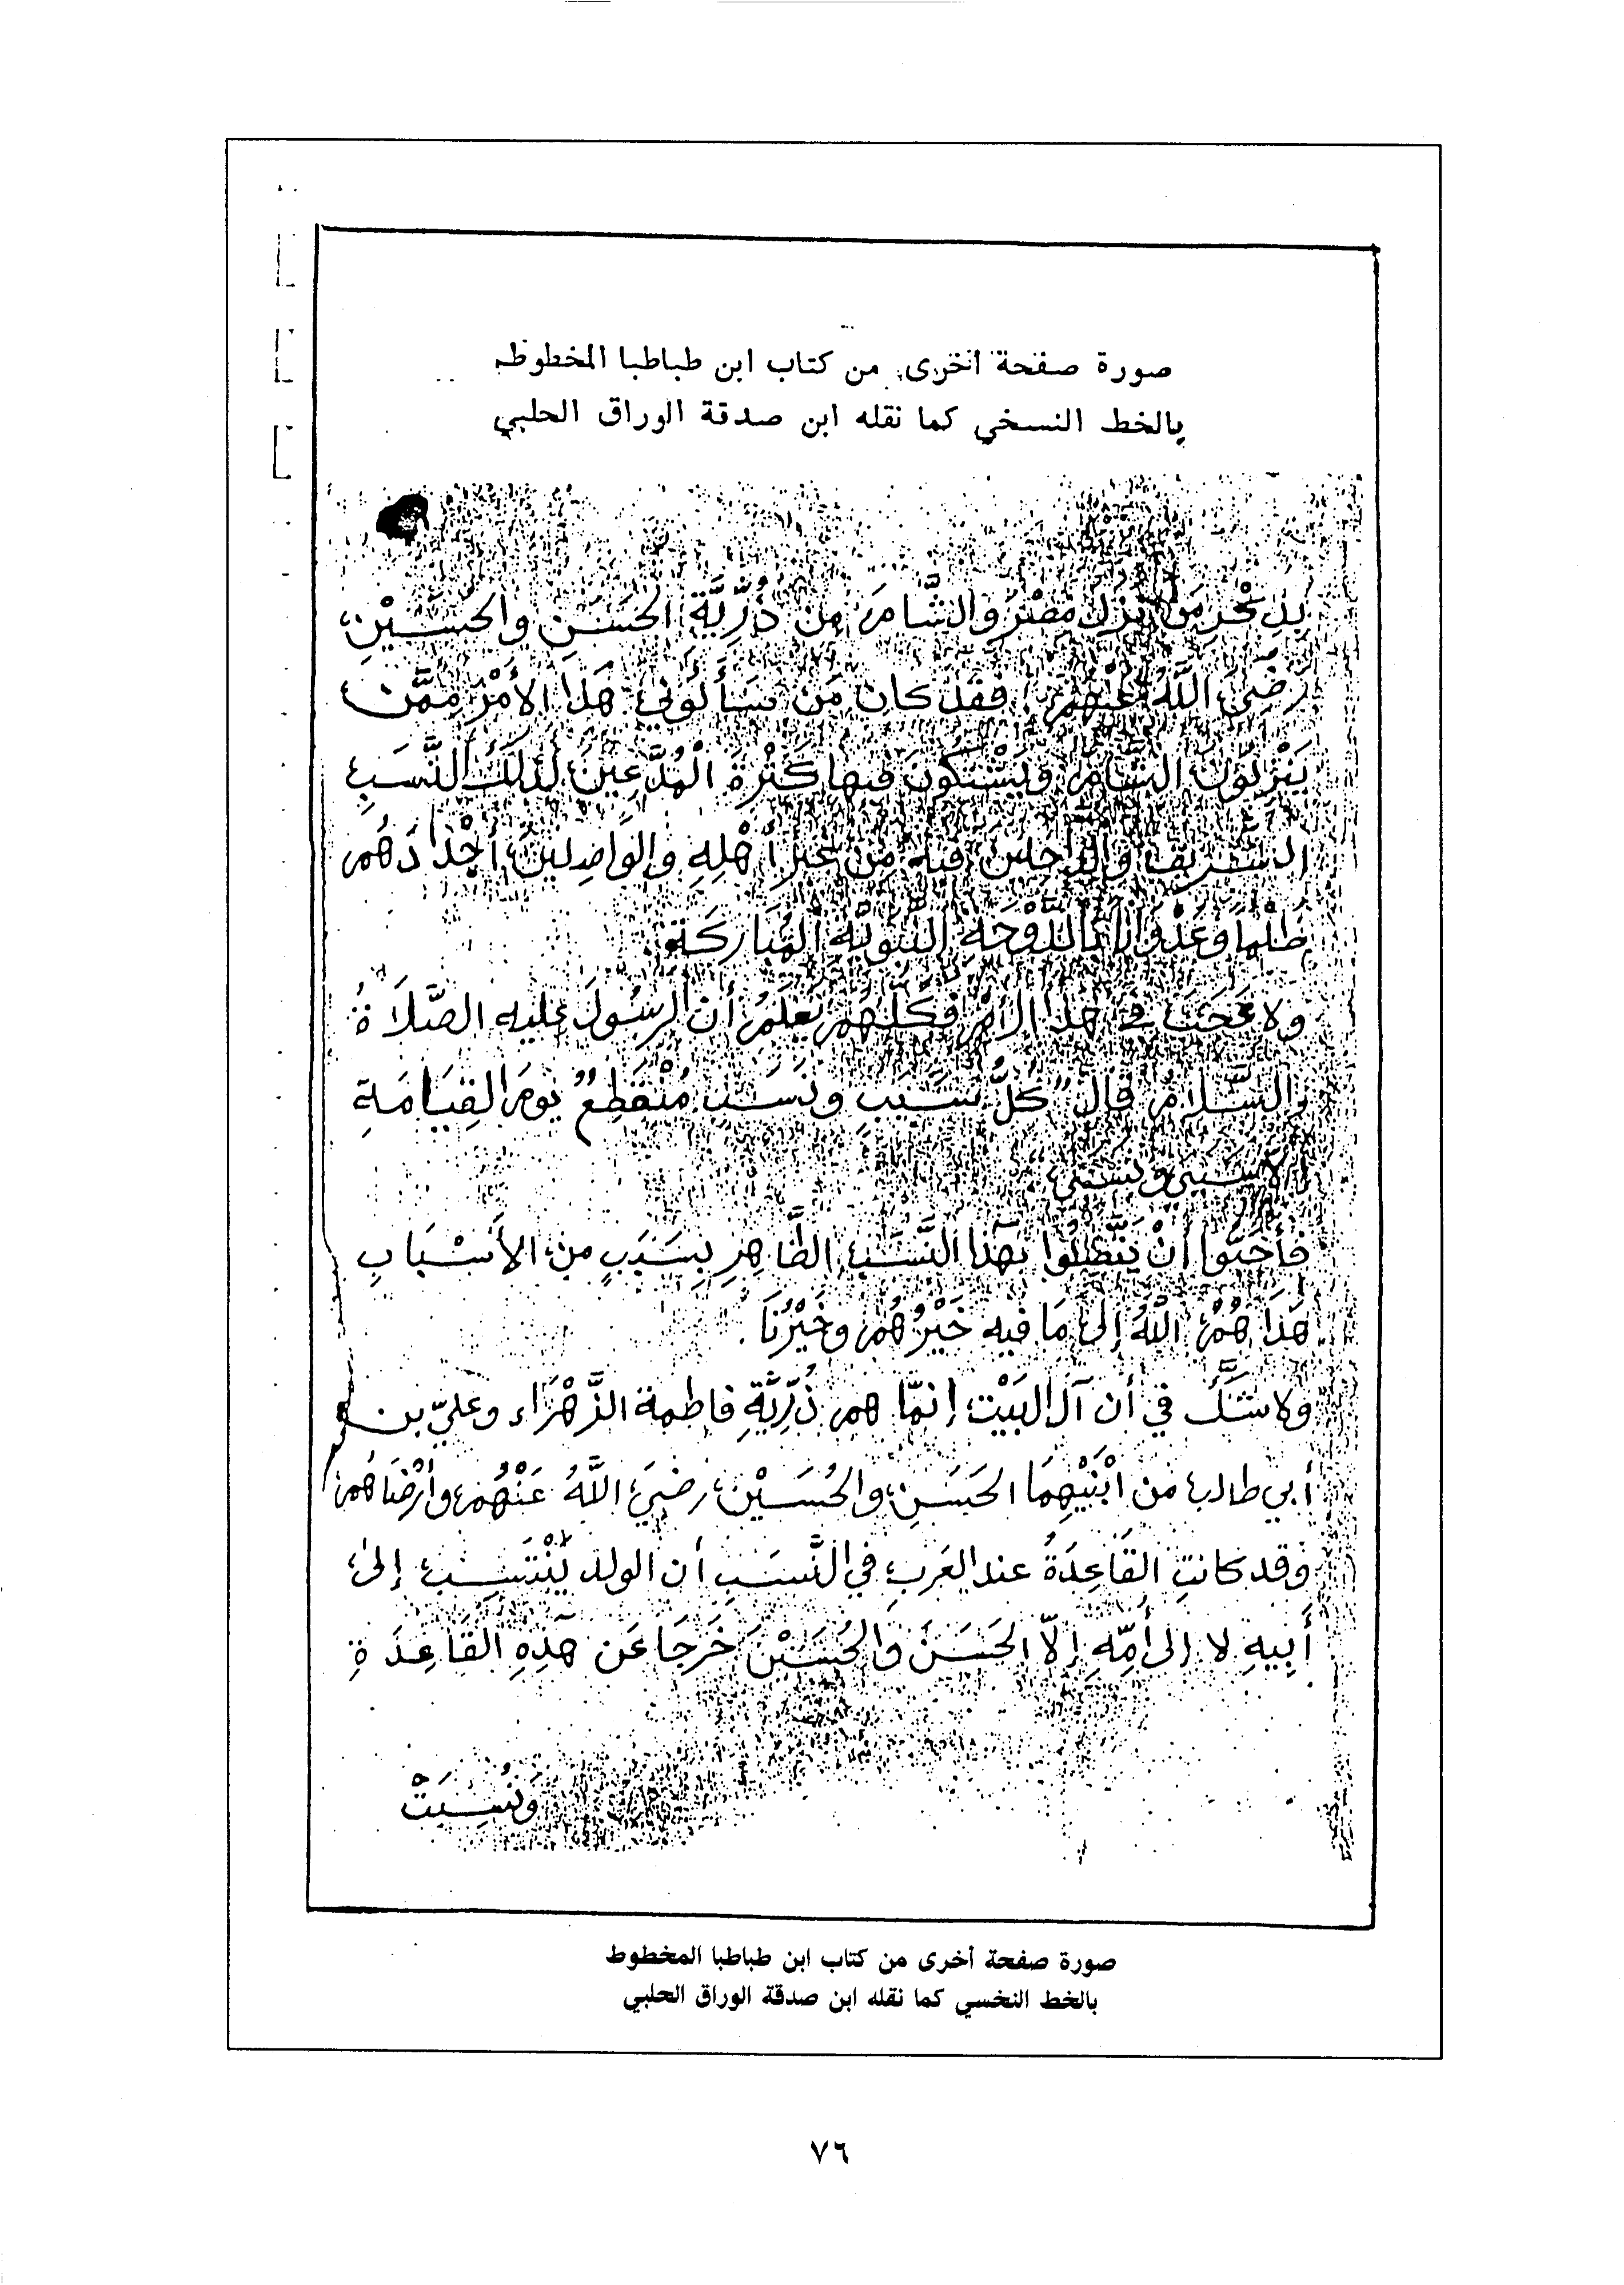 صورة صفحة أخرى من كتاب ابن طباطبا المخطوطه
بالخط النسخي كما نقله ابن صدقة الوراق الحلبي
نزل مصْرَ والشَّامَ مِن ذُرِّيَّة الحَسَنِ والحُسَيْنِ
رَضِيَ اللَّهُ عَنْهُم، فقد كان مَن سَأَلُوني هَذا الأَمْرَ مِمَّن
يَنْزِلُون الشام ويَشْتكُون فيها كَثْرَةَ الْمُدَّعِينَ لذلك النَّسَبِ
الشريف والداخلين فيه من غير أهْلِهِ والوَاصِلينَ أجْدَادَهُم
ظُلْمًا وعُدْوَانًا بالدَّوْحَةِ النبَويَّة المُبَارَكَة.
ولا عَجَبَ في هذا الأمر فكلهُم يَعْلَمُ أن الرسُولَ عليه الصَّلاَةُ
والسَّلامُ قال "كلُّ سَبَبٍ ونَسَبٍ مُنْقَطِعٌ يَومَ القِيَامَةِ
إلا سَببي ونَسَبي"
فأحَبّوا أَنْ يَتَّصِلُوا بهذا النَّسَبِ الطَّاهِرِ بِسَبَبٍ من الأَسْبَابِ
هَدَاهُمُ اللَّهُ إلى مَا فيه خَيْرُهُم وخَيْرُنَا.
ولا شَكَّ في أن آل البَيْت إنمّا هم ذُرِّيَّةِ فاطمة الزَّهْرَاء وعليّ بن
أبي طالب من ابْنَيْهِمَا الحَسَنِ والحُسَيْنِ رضيَ اللَّهُ عَنْهُم وأرْضَاهُم
وقد كانتِ القَاعِدَةُ عند العَرَبِ في النَّسَبِ أن الولد يَنْتَسِبُ إلى
أَبِيهِ لا إلى أمِّهِ إلاّ الحَسَنَ والحُسَيْنَ خَرَجَا عَن هَذِهِ القَاعِدَةِ
ونُسِبَتْ
صورة صفحة أخرى من كتاب ابن طباطبا المخطوط
بالخط النخسي كما نقله ابن صدقة الوراق الحلبي
٧٦